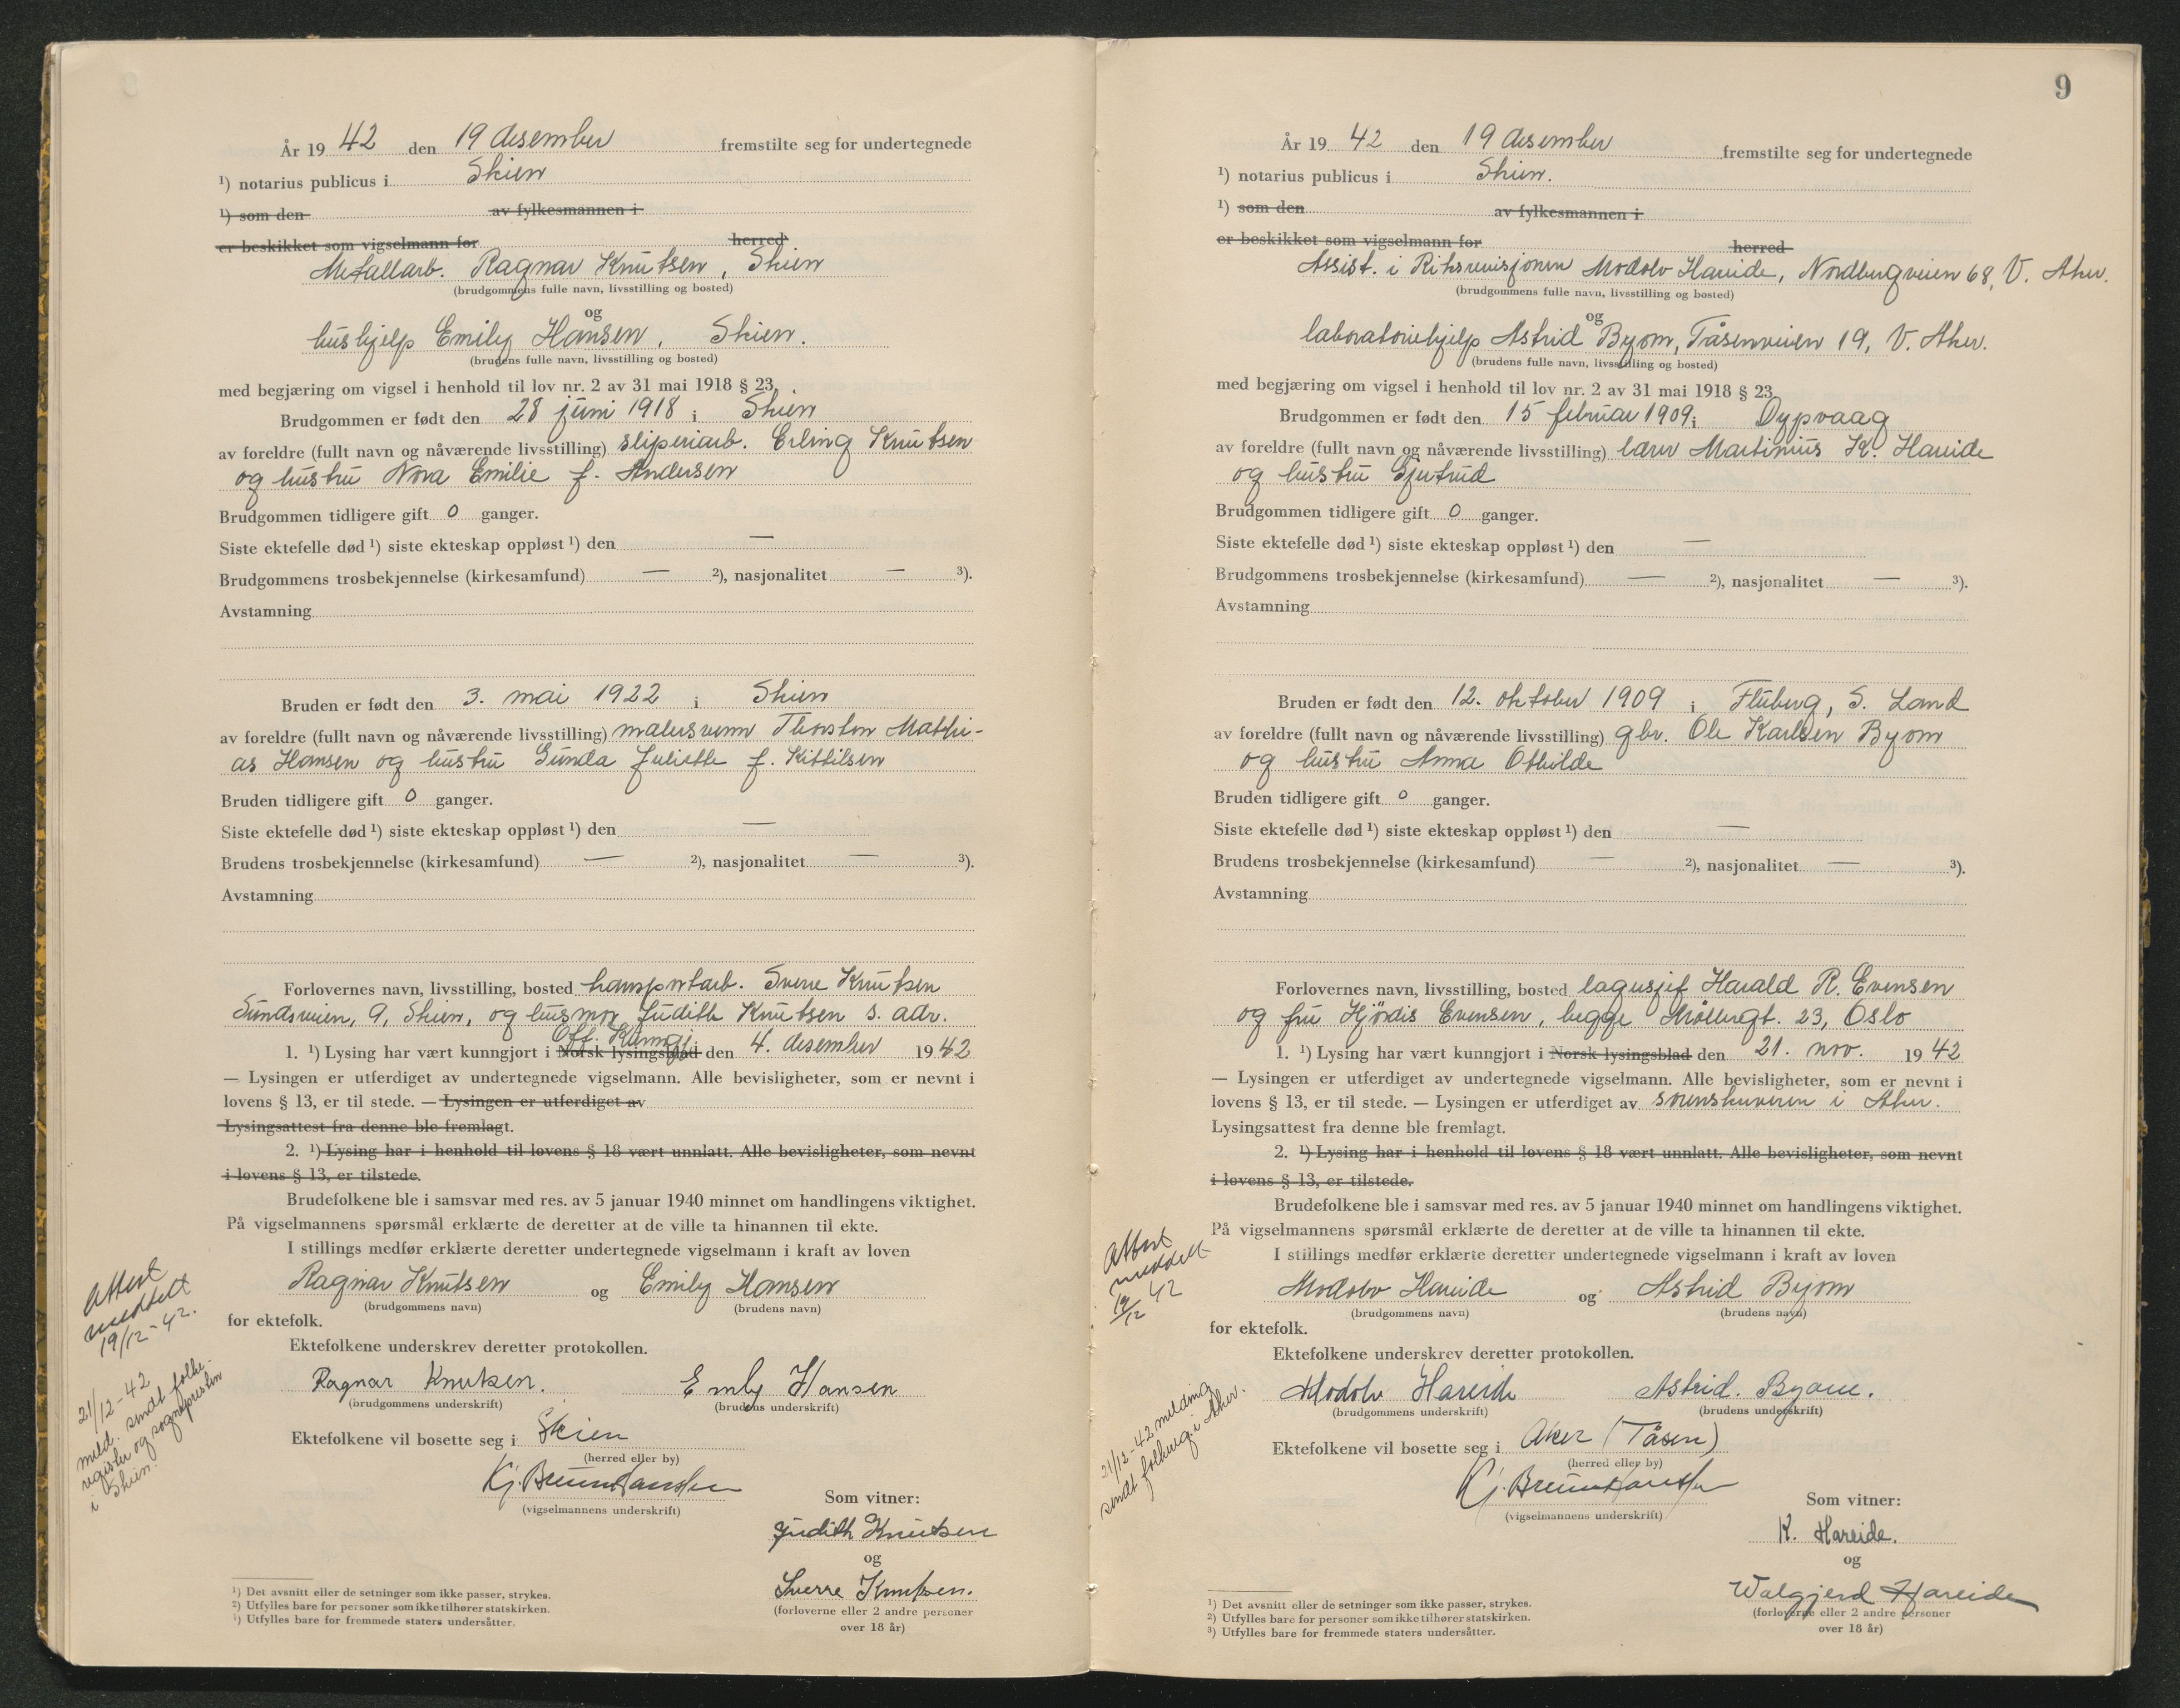 År 19 42 den 19 desember fremstilte seg for undertegnede
¹) notarius publicus i Skien
¹) som den av fylkesmannen i
er beskikket som vigselmann for herred
Metallarb. Ragnar Knutsen, Skien
(brudgommens fulle navn, livsstilling og bosted)
og
hushjelp Emily Hansen, Skien.
(brudens fulle navn, livsstilling og bosted)
med begjæring om vigsel i henhold til lov nr. 2 av 31 mai 1918 § 23.
Brudgommen er født den 28 juni 1918 i Skien
av foreldre (fullt navn og nåværende livsstilling) sliperiarb. Erling Knutsen
og hustru Nora Emilie f. Andersen
Brudgommen tidligere gift 0 ganger.
Siste ektefelle død ¹) siste ekteskap oppløst ¹) den —
Brudgommens trosbekjennelse (kirkesamfund) — ²), nasjonalitet — ³).
Avstamning
Bruden er født den 3. mai 1922 i Skien
av foreldre (fullt navn og nåværende livsstilling) malersvenn Thorston Mathi-
as Hansen og hustru Gunda Juliette f. Kittilsen
Bruden tidligere gift 0 ganger.
Siste ektefelle død ¹) siste ekteskap oppløst ¹) den —
Brudens trosbekjennelse (kirkesamfund) — ²), nasjonalitet — ³).
Avstamning
Forlovernes navn, livsstilling, bosted transportarb. Sverre Knutsen
Sundsveien, 9, Skien, og husmor Judith Knutsen s. adr.
Off. Kunngj.
1. ¹) Lysing har vært kunngjort i Norsk lysingsblad den 4. desember 19 42
— Lysingen er utferdiget av undertegnede vigselmann. Alle bevisligheter, som er nevnt i
lovens § 13, er til stede. — Lysingen er utferdiget av
Lysingsattest fra denne ble fremlagt.
2. ¹) Lysing har i henhold til lovens § 18 vært unnlatt. Alle bevisligheter, som nevnt
i lovens § 13, er tilstede.
Brudefolkene ble i samsvar med res. av 5 januar 1940 minnet om handlingens viktighet.
På vigselmannens spørsmål erklærte de deretter at de ville ta hinannen til ekte.
I stillings medfør erklærte deretter undertegnede vigselmann i kraft av loven
Ragnar Knutsen og Emily Hansen
(brudgommens navn) (brudens navn)
for ektefolk.
Ektefolkene underskrev deretter protokollen.
Ragnar Knutsen. Emly Hansen
(brudgommens underskrift) (brudens underskrift)
Ektefolkene vil bosette seg i Skien
(herred eller by)
Kj. Bruun Hanssen
(vigselmannens underskrift)
Som vitner:
Judith Knutsen
og
Sverre Knutsen.
(forloverne eller 2 andre personer
over 18 år)
Attest
meddelt
19/12-42.
21/12-42
meld. sendt folke-
register og sognepresten
i Skien.
¹) Det avsnitt eller de setninger som ikke passer, strykes.
²) Utfylles bare for personer som ikke tilhører statskirken.
³) Utfylles bare for fremmede staters undersåtter.
9
År 19 42 den 19 desember fremstilte seg for undertegnede
¹) notarius publicus i Skien.
¹) som den av fylkesmannen i
er beskikket som vigselmann for herred
Assist. i Riksrevisjonen Modolv Hareide, Nordbergveien 68, V. Aker.
(brudgommens fulle navn, livsstilling og bosted)
og
laboratoriehjelp Astrid Byom, Tåsenveien 19, V. Aker.
(brudens fulle navn, livsstilling og bosted)
med begjæring om vigsel i henhold til lov nr. 2 av 31 mai 1918 § 23.
Brudgommen er født den 15 februar 1909 i Dypvaag
av foreldre (fullt navn og nåværende livsstilling) lærer Martinius K. Hareide
og hustru Gjertrud
Brudgommen tidligere gift 0 ganger.
Siste ektefelle død ¹) siste ekteskap oppløst ¹) den —
Brudgommens trosbekjennelse (kirkesamfund) — ²), nasjonalitet — ³).
Avstamning
Bruden er født den 12. oktober 1909 i Fluberg, S. Land
av foreldre (fullt navn og nåværende livsstilling) gbr. Ole Karlsen Byom
og hustru Anna Othilde
Bruden tidligere gift 0 ganger.
Siste ektefelle død ¹) siste ekteskap oppløst ¹) den —
Brudens trosbekjennelse (kirkesamfund) — ²), nasjonalitet — ³).
Avstamning
Forlovernes navn, livsstilling, bosted lagersjef Harald R. Evensen
og fru Hjördis Evensen, begge Møllergt. 23, Oslo
1. ¹) Lysing har vært kunngjort i Norsk lysingsblad den 21. nov. 19 42
— Lysingen er utferdiget av undertegnede vigselmann. Alle bevisligheter, som er nevnt i
lovens § 13, er til stede. — Lysingen er utferdiget av sorenskriveren i Aker.
Lysingsattest fra denne ble fremlagt.
2. ¹) Lysing har i henhold til lovens § 18 vært unnlatt. Alle bevisligheter, som nevnt
i lovens § 13, er tilstede.
Brudefolkene ble i samsvar med res. av 5 januar 1940 minnet om handlingens viktighet.
På vigselmannens spørsmål erklærte de deretter at de ville ta hinannen til ekte.
I stillings medfør erklærte deretter undertegnede vigselmann i kraft av loven
Modolv Hareide og Astrid Byom
(brudgommens navn) (brudens navn)
for ektefolk.
Ektefolkene underskrev deretter protokollen.
Modolv Hareide Astrid. Byom.
(brudgommens underskrift) (brudens underskrift)
Ektefolkene vil bosette seg i Aker (Tåsen)
(herred eller by)
Kj. Bruun Hanssen
(vigselmannens underskrift)
Som vitner:
K. Hareide.
og
Walgjerd Hareide
(forloverne eller 2 andre personer
over 18 år)
Attest
meddelt
19/12 42
21/12-42 melding
sendt folkereg. i Aker.
¹) Det avsnitt eller de setninger som ikke passer, strykes.
²) Utfylles bare for personer som ikke tilhører statskirken.
³) Utfylles bare for fremmede staters undersåtter.